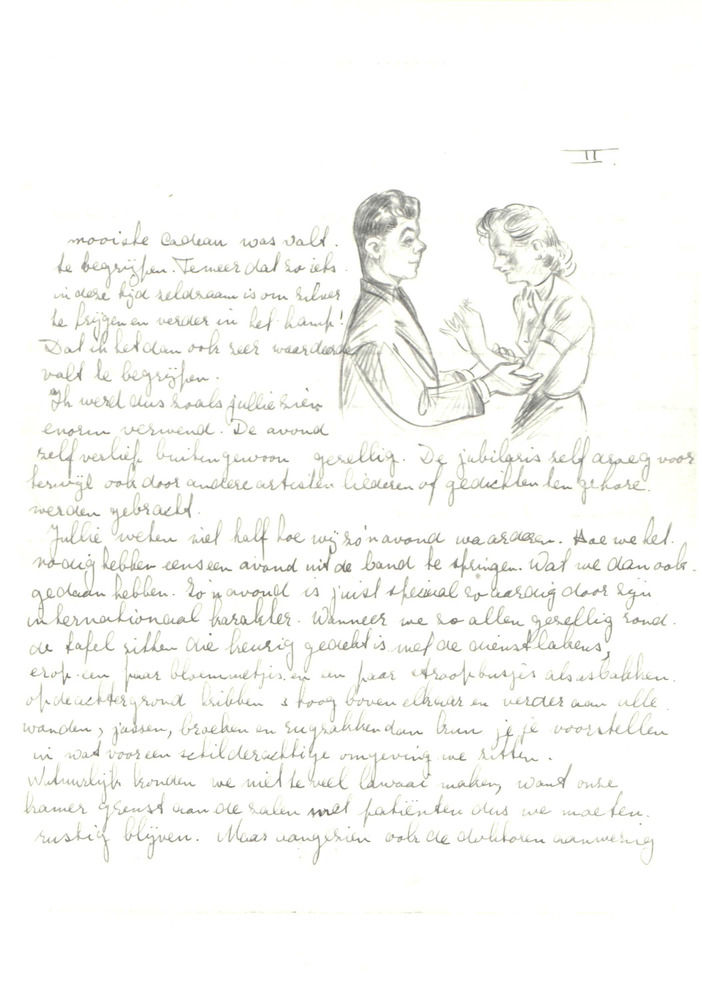 II
mooiste cadeau was valt.
te begrijpen. Temeer dat zo iets
in deze tijd zeldzaam is om zilver
te krijgen en verder in het kamp!
Dat ik het dan ook zeer waardeerde
valt te begrijpen.
Ik werd dus zoals jullie zien
enorm verwend. De avond
zelf verliep buitengewoon gezellig. De jubilaris zelf droeg voor
terwijl ook door andere artisten liederen of gedichten ten gehore.
werden gebracht.
Jullie weten niet half hoe wij zo'n avond waarderen. Hoe we het.
nodig hebben eens een avond uit de band te springen. Wat we dan ook.
gedaan hebben. Zo'n avond is juist speciaal zo aardig door zijn
internationaal karakter. Wanneer we zo allen gezellig rond.
de tafel zitten die keurig gedekt is met de dienstlakens,
erop een paar bloemmetjes en een paar stroopbusjes als asbakken.
op de achtergrond kribben 3 hoog boven elkaar en verder aan alle
wanden, jassen, broeken en rugzakken dan kun je je voorstellen
in wat voor een schilderachtige omgeving we zitten.
Natuurlijk konden we niet te veel lawaai maken, want onze
kamer grenst aan de zalen met patiënten dus we moeten.
rustig blijven. Maar aangezien ook de doktoren aanwezig